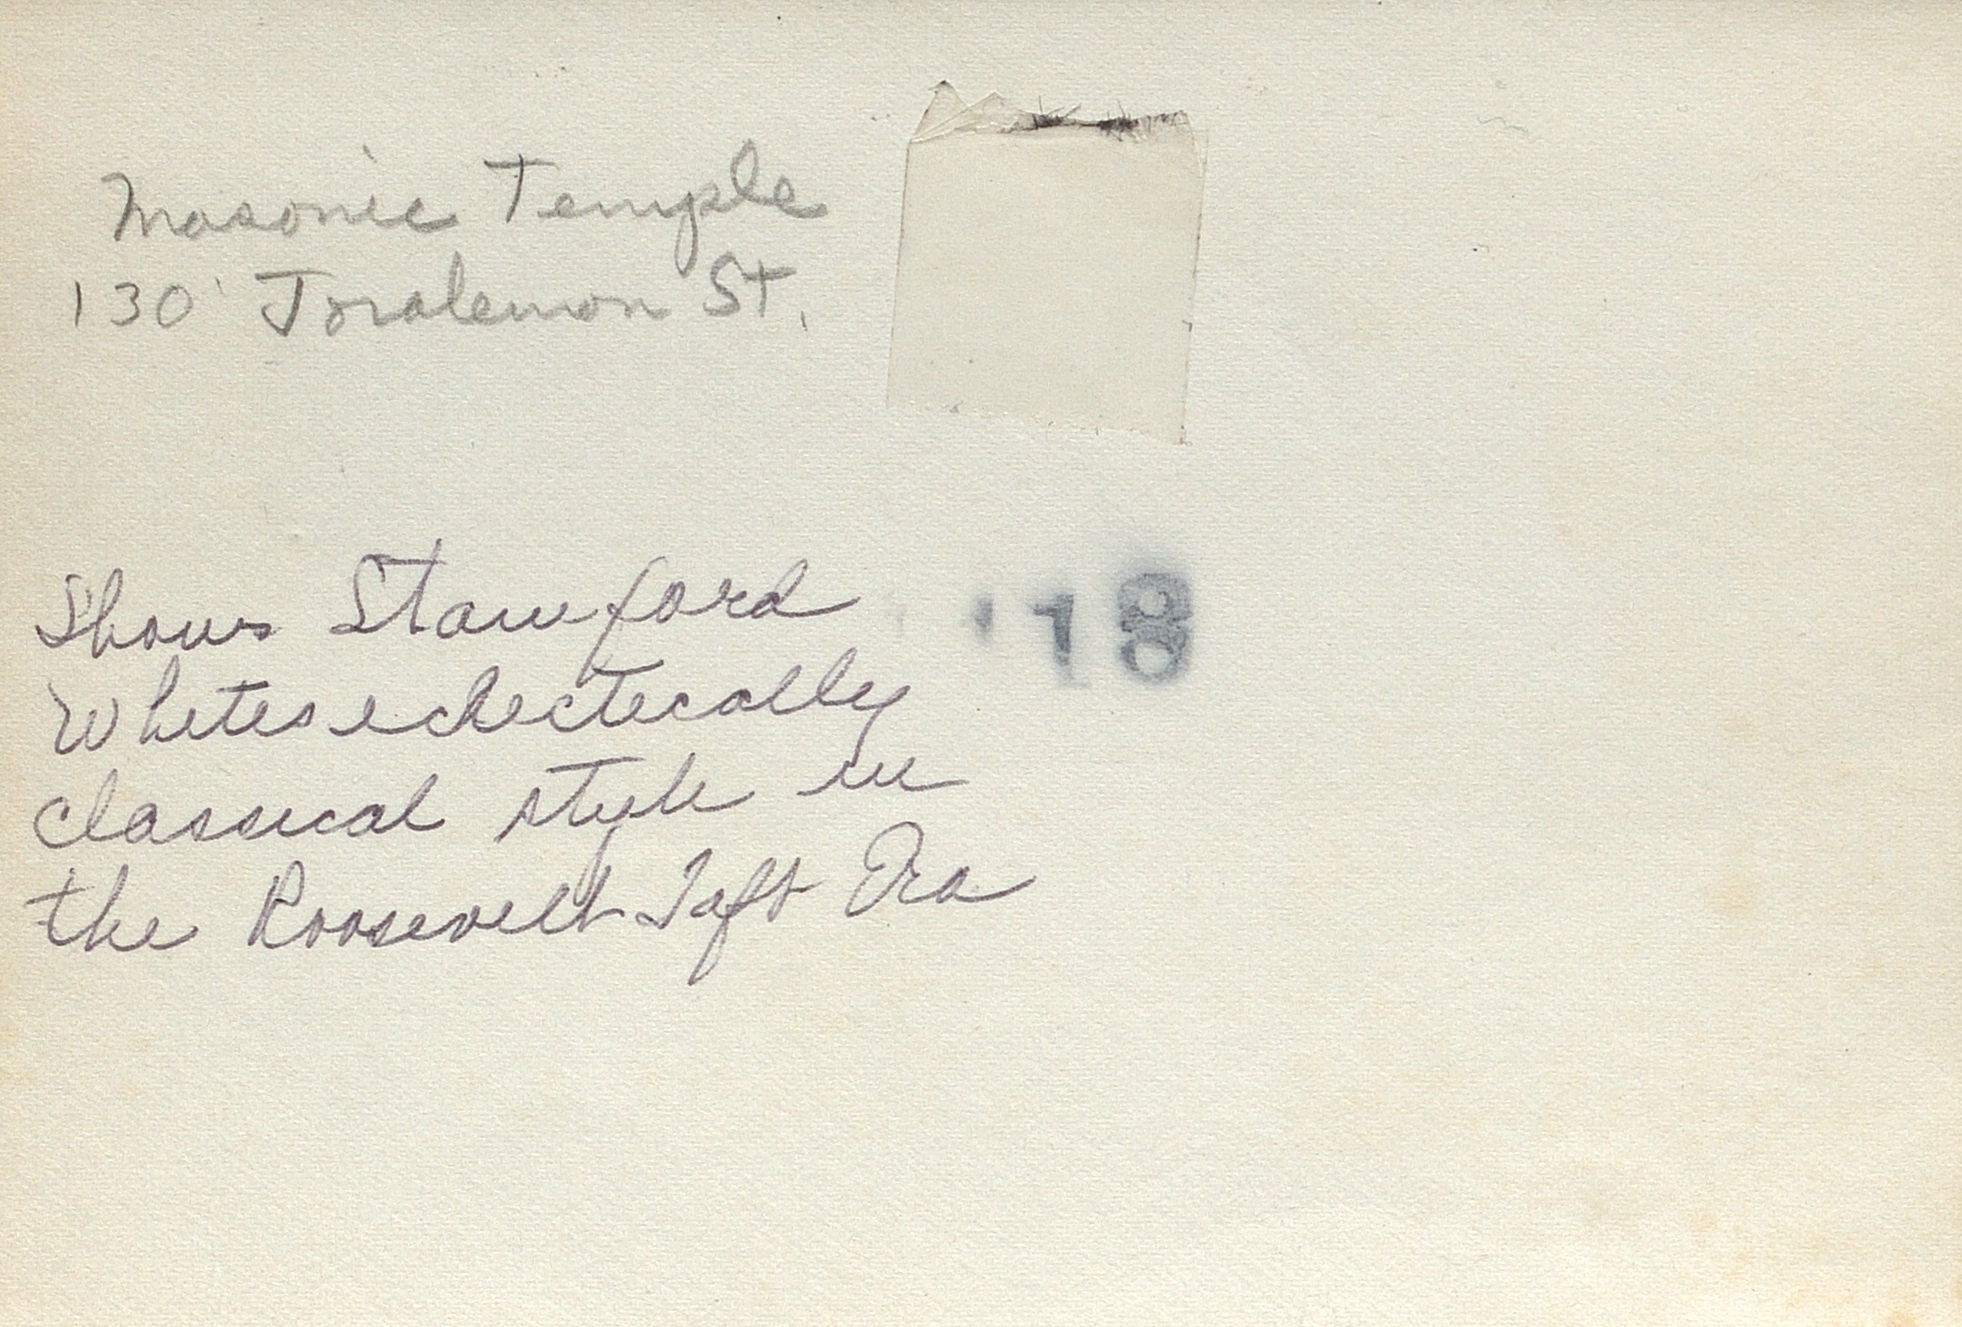 Masonic Temple
130 Joralemon St.
Shows Stamford
Whites eclectically
classical style in
the Roosevelt-Taft Era
'18